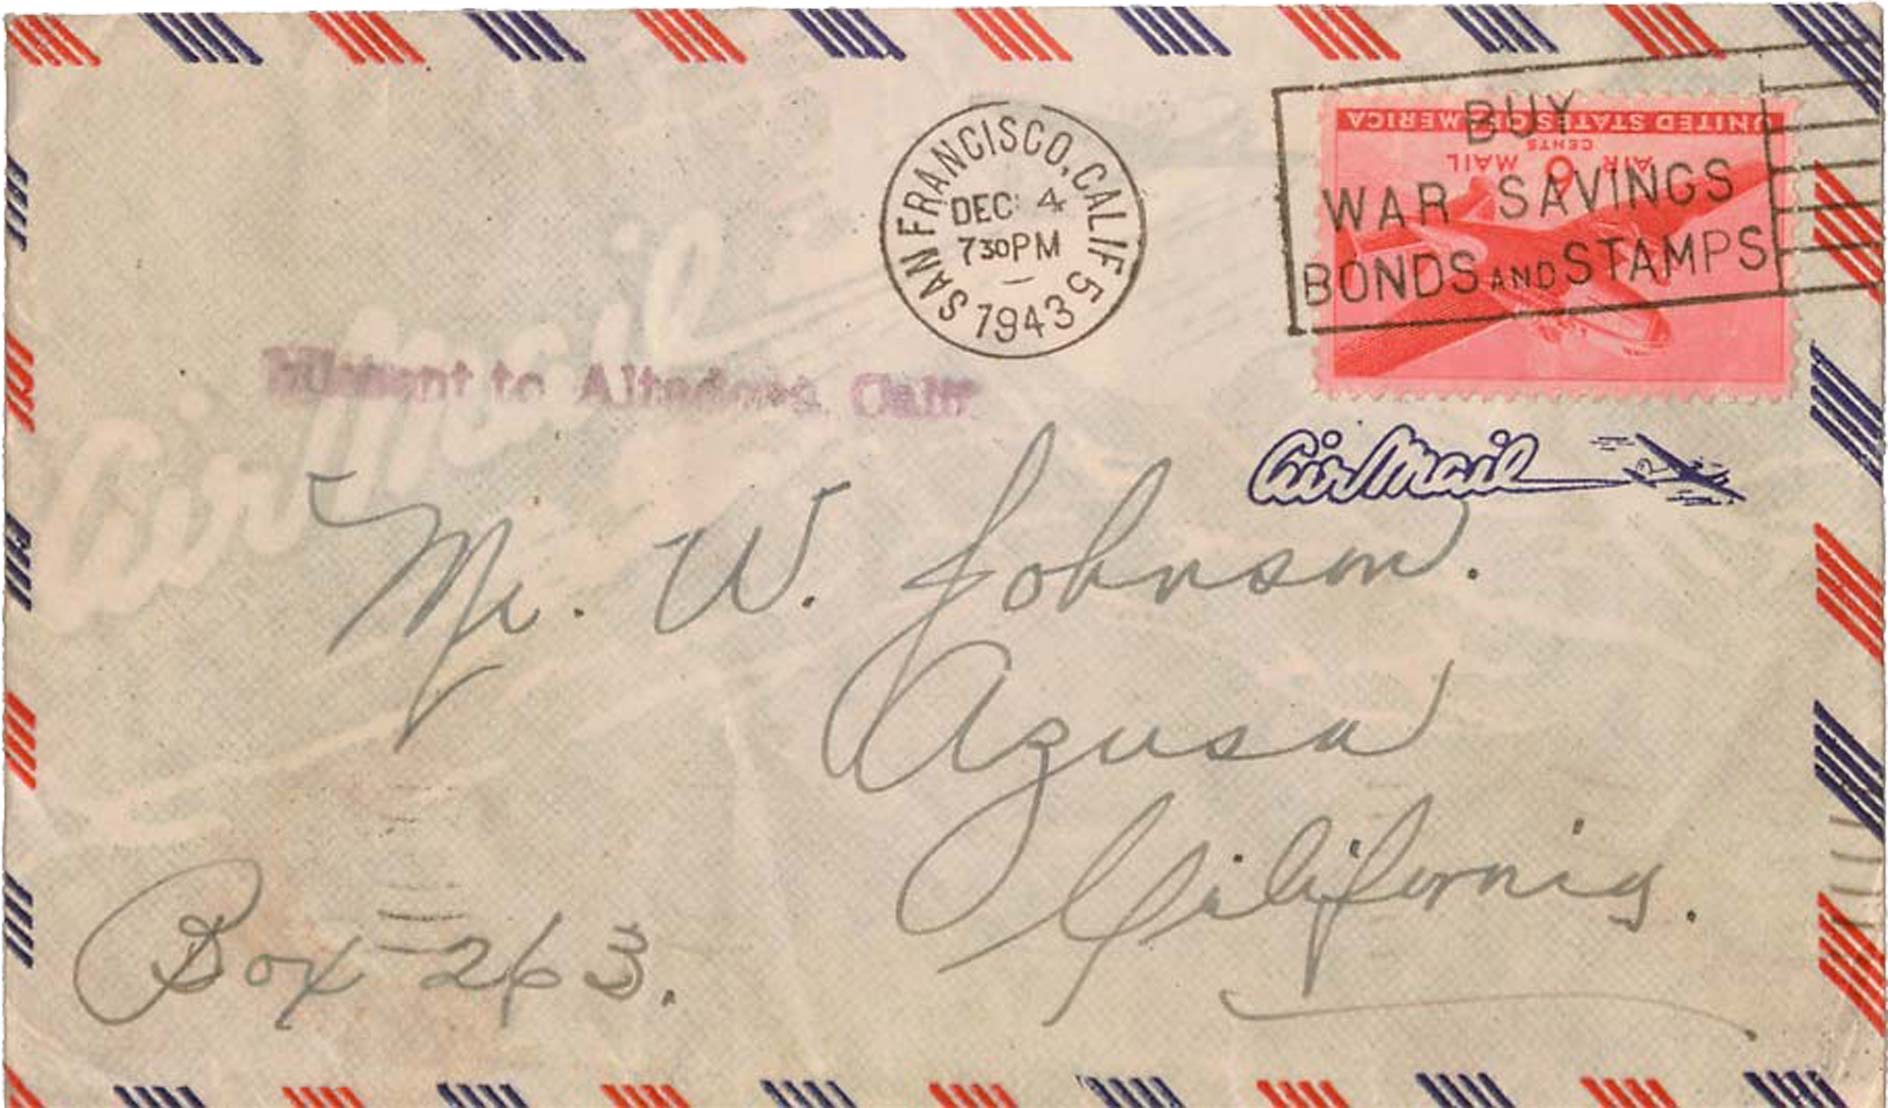 SAN FRANCISCO, CALIF 5
DEC 4
730PM
1943
BUY
WAR SAVINGS
BONDS AND STAMPS
UNITED STATES OF AMERICA
CENTS
AIR 6 MAIL
to Altadena, Calif
Air Mail
Air Mail
Mr. W. Johnson.
Azusa
California.
Box 263.